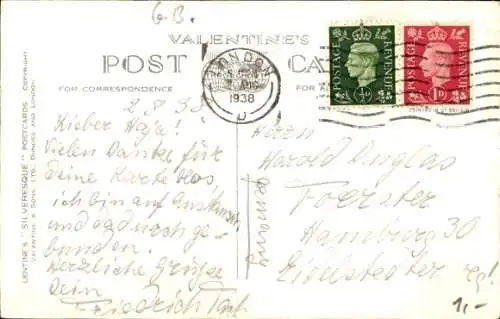 GB.
VALENTINE'S
POST CA
FOR CORRESPONDENCE
FOR A
LONDON
AUG
1938
POSTAGE REVENUE
½D
POSTAGE REVENUE
1D
LENTINE'S "SILVERESQUE" POSTCARDS COPYRIGHT
VALENTINE & SONS LTD. DUNDEE AND LONDON
2.8.38
Lieber Haja!
Vielen Danke für
deine Karte
ich bin auf
und dadurch ge-
bunden.
Herzliche Grüsse
Dein
Friedrich
Herrn
Harold Duglas
Foerster
Hamburg 30
Eidelstedter
Germany
1,-